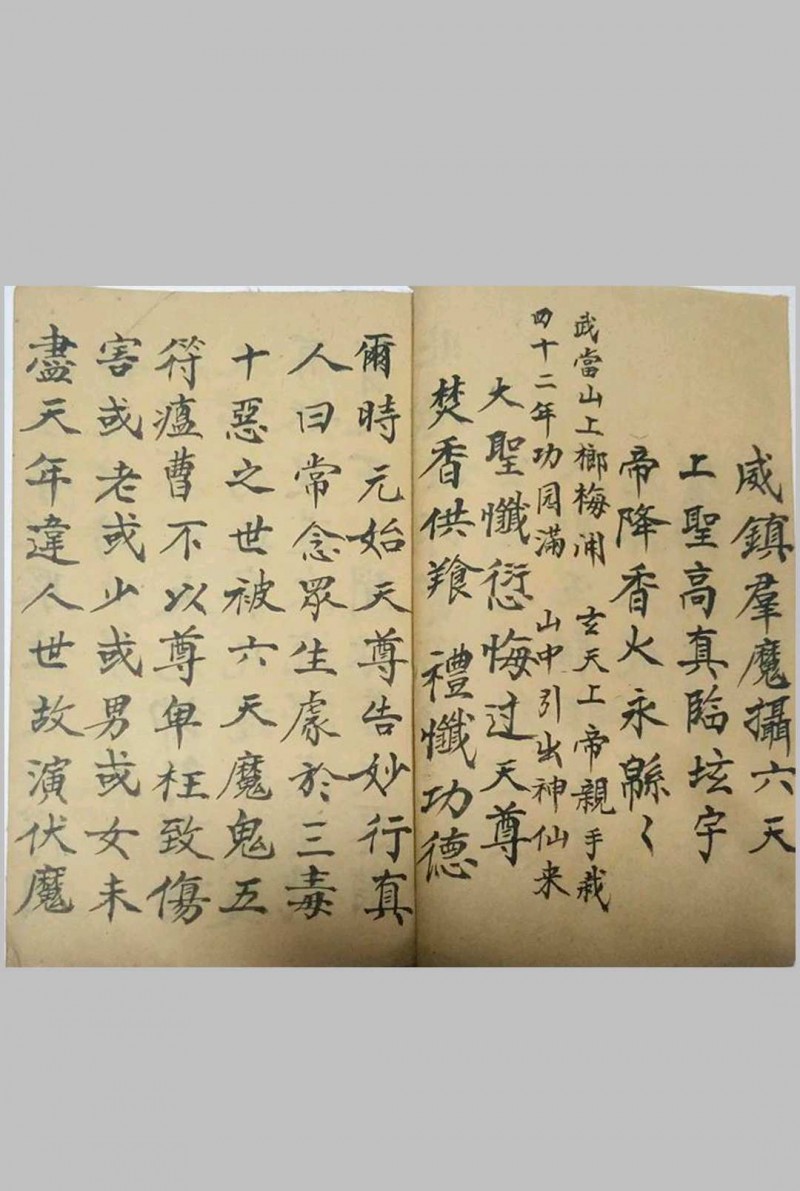 威鎮羣魔攝六天
上聖高真臨坛宇
帝降香火永緜〻
武當山上榔梅開 玄天上帝親手栽
四十二年功园滿 山中引出神仙来
大聖懺愆悔过天尊
焚香供養 禮懺功德
爾時元始天尊告妙行真
人曰常念眾生處於三毒
十惡之世被六天魔鬼五
符瘟曹不以尊卑枉致傷
害或老或少或男或女未
盡天年違人世故演伏魔